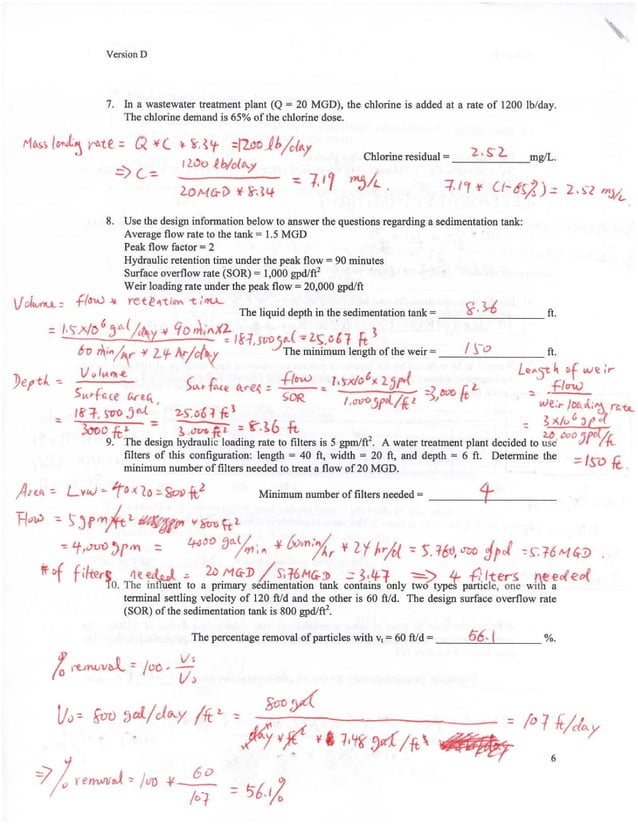 Version D
7. In a wastewater treatment plant (Q = 20 MGD), the chlorine is added at a rate of 1200 lb/day.
The chlorine demand is 65% of the chlorine dose.
Mass loading rate = Q * C * 8.34 = 1200 lb/day
Chlorine residual = 2.52 mg/L.
=> C = 1200 lb/day / 20 MGD * 8.34 = 7.19 mg/L.
7.19 * (1-65%) = 2.52 mg/L
8. Use the design information below to answer the questions regarding a sedimentation tank:
Average flow rate to the tank = 1.5 MGD
Peak flow factor = 2
Hydraulic retention time under the peak flow = 90 minutes
Surface overflow rate (SOR) = 1,000 gpd/ft²
Weir loading rate under the peak flow = 20,000 gpd/ft
Volume = flow * retention time
The liquid depth in the sedimentation tank = 8.36 ft.
= 1.5×10⁶ gal/day * 90 min×2 / 60 min/hr * 24 hr/day = 187,500 gal = 25,067 ft³
The minimum length of the weir = 150 ft.
Depth = Volume / Surface area
Surface area = flow / SOR = 1.5×10⁶ × 2 gpd / 1,000 gpd/ft² = 3,000 ft²
Length of weir
= flow / weir loading rate
= 187,500 gal / 3000 ft² = 25,067 ft³ / 3,000 ft² = 8.36 ft
= 3×10⁶ gpd / 20,000 gpd/ft
= 150 ft.
9. The design hydraulic loading rate to filters is 5 gpm/ft². A water treatment plant decided to use
filters of this configuration: length = 40 ft, width = 20 ft, and depth = 6 ft. Determine the
minimum number of filters needed to treat a flow of 20 MGD.
Area = L×w = 40×20 = 800 ft²
Minimum number of filters needed = 4
Flow = 5 gpm/ft² * 800 ft²
= 4,000 gpm = 4000 gal/min * 60 min/hr * 24 hr/d = 5,760,000 gpd = 5.76 MGD.
# of filters needed = 20 MGD / 5.76 MGD = 3.47 => 4 filters needed
10. The influent to a primary sedimentation tank contains only two types particle, one with a
terminal settling velocity of 120 ft/d and the other is 60 ft/d. The design surface overflow rate
(SOR) of the sedimentation tank is 800 gpd/ft².
The percentage removal of particles with vₜ = 60 ft/d = 56.1 %.
% removal = 100 · Vs / Vo
Vo = 800 gal/day/ft² = 800 gal / day * ft² * 7.48 gal/ft³ = 107 ft/day
=> % removal = 100 * 60 / 107 = 56.1%
6